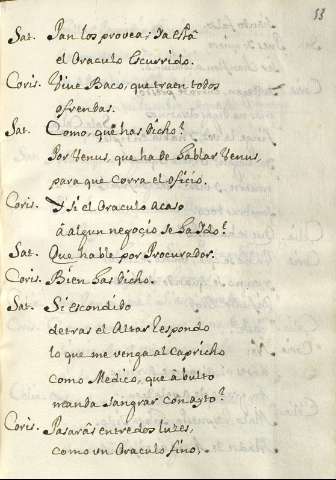 53
Sat. Pan los provea; ya está
el Oraculo Escurrido.
Coris. Vive Baco, que traen todos
ofrendas.
Sat. Como, què has dicho?
Por Venus, que ha de hablar Venus,
para que corra el oficio.
Coris. Y si el Oraculo acaso
â algun negocio se ha Ido?
Sat. Que hable por Procurador.
Coris. Bien has dicho.
Sat. Si escondido
detras el Altar Respondo
lo que me venga al Capricho
como Medico, que â bulto
manda sangrar con
Coris. Pasarâs entre dos luzes,
como un Oraculo fino,